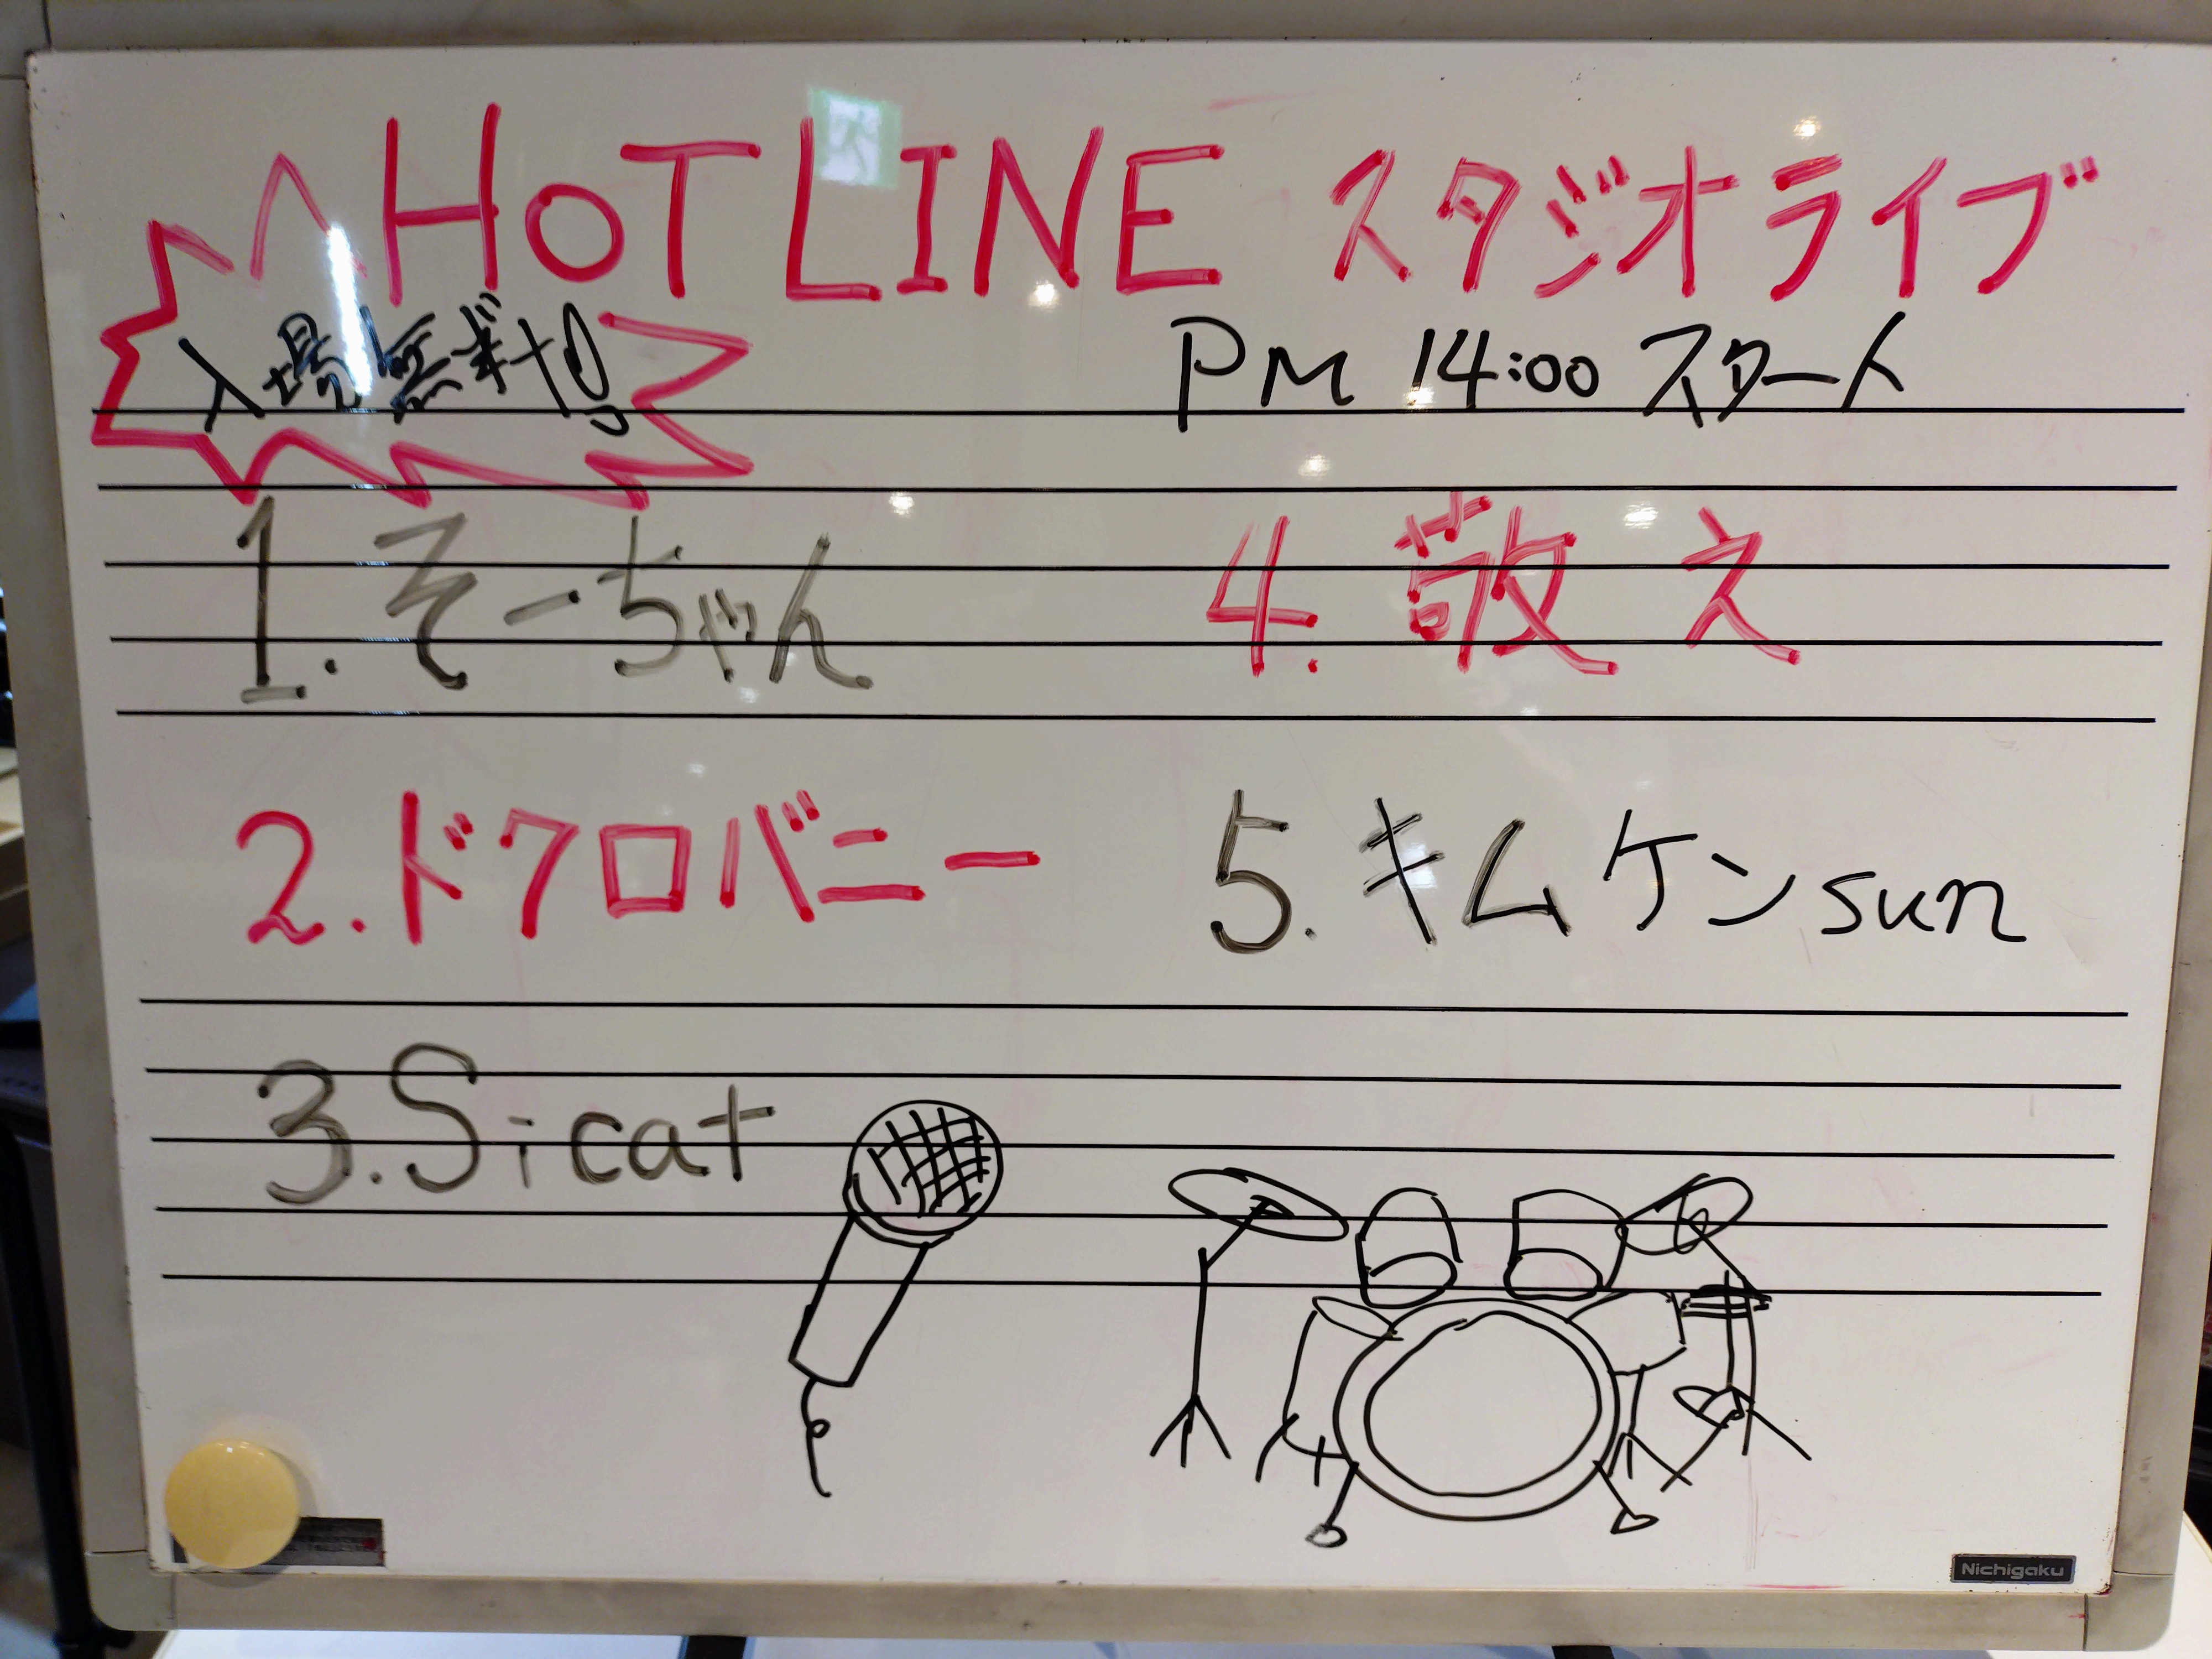 HOTLINE スタジオライブ
入場無料!
PM 14:00 スタート
1. そーちゃん
2. ドクロバニー
3. Sicat
4. 敢え
5. キムケンsun
Nichigaku